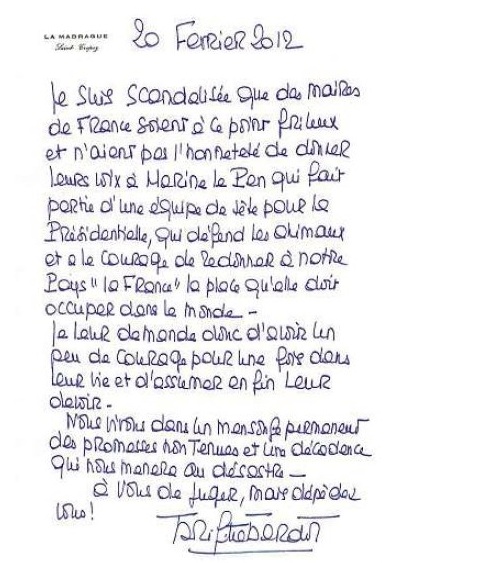 LA MADRAGUE
Saint Tropez
20 Fevrier 2012
Je suis scandalisée que des maires
de France soient à ce point frileux
et n'aient pas l'honneteté de donner
leurs voix à Marine le Pen qui fait
partie d'une équipe de tête pour la
Présidentielle, qui défend les animaux
et a le courage de redonner à notre
Pays "la France" la place qu'elle doit
occuper dans le monde -
Je leur demande donc d'avoir un
peu de courage pour une fois dans
leur vie et d'assumer en fin leur
devoir -
Nous vivons dans un mensonge permanent
des promesses non tenues et une décadence
qui nous menera au désastre -
à vous de juger, mais dépéchez
vous !
Brigitte Bardot